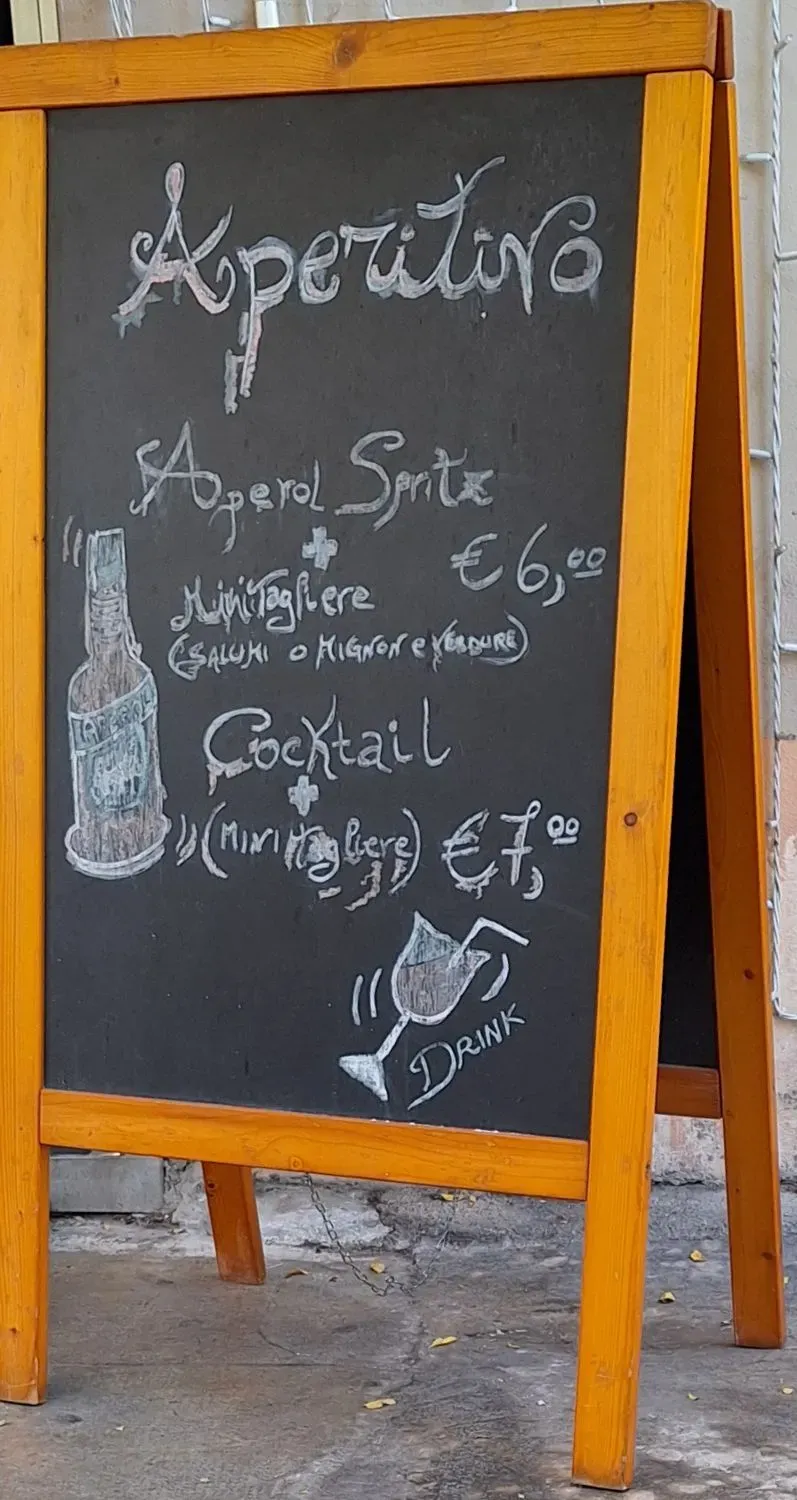 Aperitivo
Aperol Spritz
+
€ 6,00
MiniTagliere
(SALUMI o MIGNON e VERDURE)
APEROL
Cocktail
+
(MINI Tagliere) €7,00
DRINK